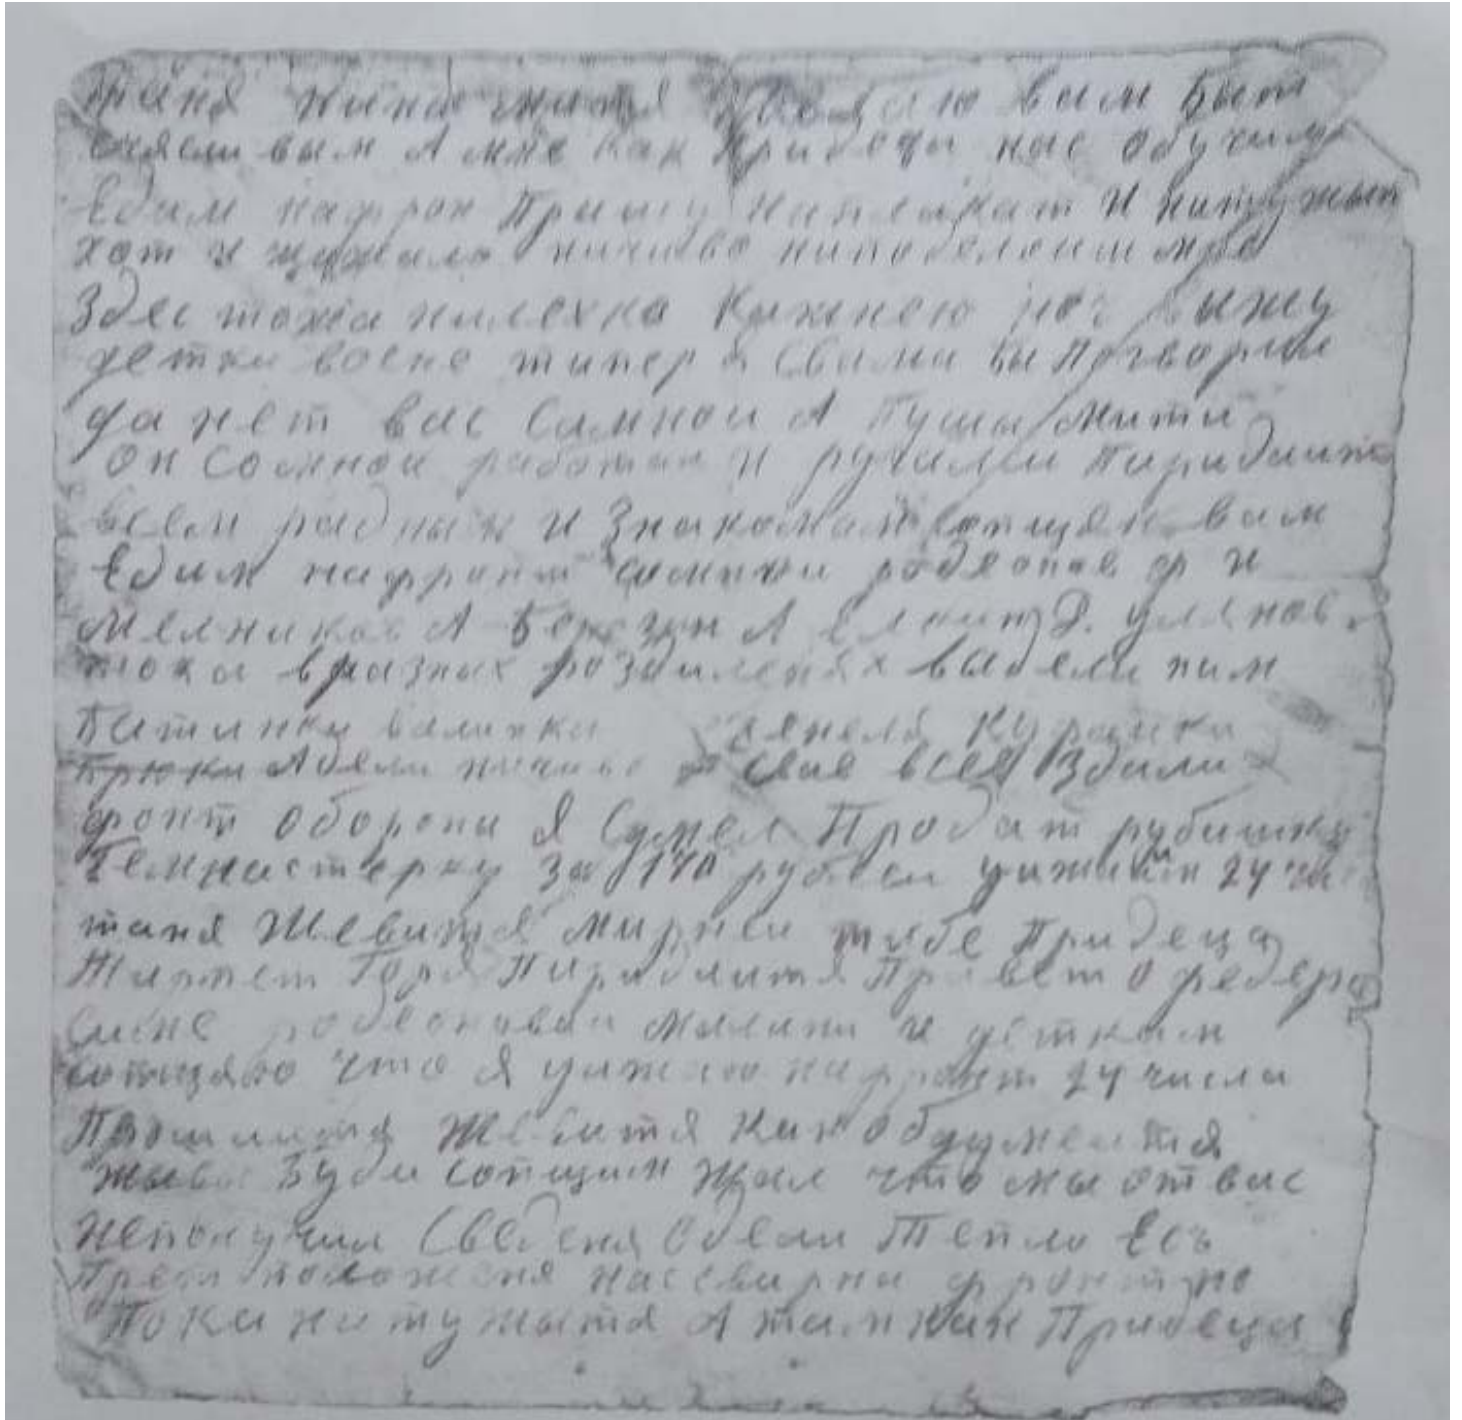 Таня Нина вам быт
счясливым А мне как придеца нас обучили
Едим нафрон Прошу ниплакат и нитужыт
хот и тижило ничиво ниподелоиш мне
Здес тожа нилехко Кажнею ноч выжу
детки восне типер я Свами бы Погворил
да нет вас Самной А Пушы Мити
он Сомной работал и ручалси Пиридаит
всем радным и Знакомам сопщяи вам
Едим нафронт сомною родеонов ф и
Мелников А Березин А Елкин Д. Улянов.
тока вразных розделенях выдели ним
Батинки валинки Куфайки
Брюки Адели ничиво свае всея Здали
фронт обороны я Сумел Продат рубашку
Гемнистерку за 170 рублеи уижаим 24 чис
таня Жевитя мирнеи тибе Придеца
Горя Пиридаитя Привет о федеро
Сионе родеоновои Малани и деткам
сопщяю что я уижаю нафронт 24 числа
Жевитя как обдумаитя
жывы Буди сопщим Жал что мы от вас
неполучили Сведеня Одели Тепло Есь
Предположеня насевирни фронт но
Пока нитужытя А там как Придеца